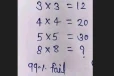 3 × 3 = 12
4 × 4 = 20
5 × 5 = 30
8 × 8 = ?
99% Fail